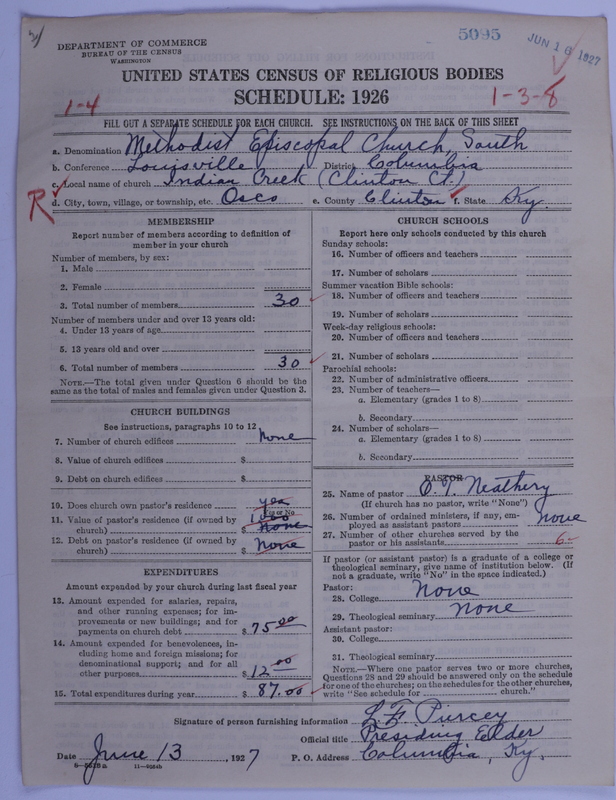 5095
JUN 16 1927
DEPARTMENT OF COMMERCE
BUREAU OF THE CENSUS
WASHINGTON
UNITED STATES CENSUS OF RELIGIOUS BODIES
SCHEDULE: 1926
1-4
1-3-8
FILL OUT A SEPARATE SCHEDULE FOR EACH CHURCH. SEE INSTRUCTIONS ON THE BACK OF THIS SHEET
a. Denomination Methodist Episcopal Church, South
b. Conference Louisville District Columbia
c. Local name of church Indian Creek (Clinton Ct.)
R
d. City, town, village, or township, etc. Osco e. County Clinton f. State Ky.
MEMBERSHIP
Report number of members according to definition of
member in your church
Number of members, by sex:
1. Male
2. Female
3. Total number of members 30
Number of members under and over 13 years old:
4. Under 13 years of age
5. 13 years old and over
6. Total number of members 30
NOTE.—The total given under Question 6 should be the
same as the total of males and females given under Question 3.
CHURCH BUILDINGS
See instructions, paragraphs 10 to 12
7. Number of church edifices None
8. Value of church edifices $
9. Debt on church edifices $
10. Does church own pastor's residence yes
Yes or No
11. Value of pastor's residence (if owned by
church) $ 1000 None
12. Debt on pastor's residence (if owned by
church) $ None
EXPENDITURES
Amount expended by your church during last fiscal year
13. Amount expended for salaries, repairs,
and other running expenses; for im-
provements or new buildings; and for
payments on church debt $ 75.00
14. Amount expended for benevolences, in-
cluding home and foreign missions; for
denominational support; and for all
other purposes $ 12.00
15. Total expenditures during year $ 87.00
CHURCH SCHOOLS
Report here only schools conducted by this church
Sunday schools:
16. Number of officers and teachers
17. Number of scholars
Summer vacation Bible schools:
18. Number of officers and teachers
19. Number of scholars
Week-day religious schools:
20. Number of officers and teachers
21. Number of scholars
Parochial schools:
22. Number of administrative officers
23. Number of teachers—
a. Elementary (grades 1 to 8)
b. Secondary
24. Number of scholars—
a. Elementary (grades 1 to 8)
b. Secondary
PASTOR
25. Name of pastor Neathery
(If church has no pastor, write "None")
26. Number of ordained ministers, if any, em-
ployed as assistant pastors none
27. Number of other churches served by the
pastor or his assistants 6
If pastor (or assistant pastor) is a graduate of a college or
theological seminary, give name of institution below. (If
not a graduate, write "No" in the space indicated.)
Pastor:
28. College None
29. Theological seminary None
Assistant pastor:
30. College
31. Theological seminary
NOTE.—Where one pastor serves two or more churches,
Questions 28 and 29 should be answered only on the schedule
for one of the churches; on the schedules for the other churches,
write "See schedule for church."
Signature of person furnishing information L. F. Piercey
Official title Presiding Elder
Date June 13, 1927 P. O. Address Columbia, Ky.